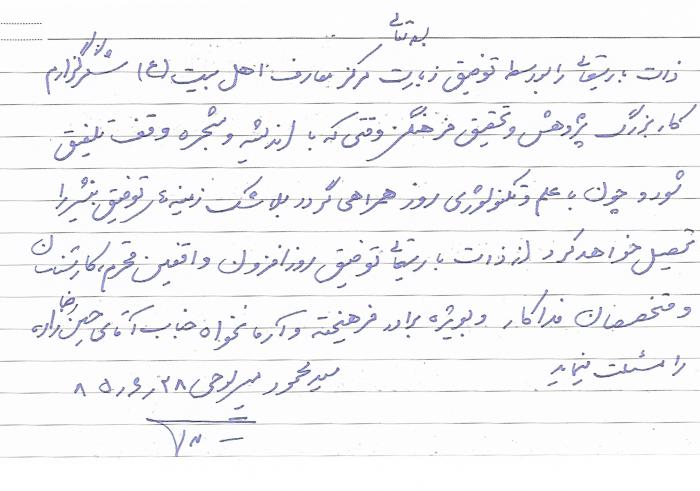 بسمه تعالی
ذات باریتعالی را بواسطه توفیق زیارت مرکز معارف اهل بیت (ع) شکرگزارم
کار بزرگ پژوهش و تحقیق فرهنگی وقتی که با اندیشه و شجره وقف تلفیق
شود و چون با علم و تکنولوژی روز همراهی گردد بلاشک زمینه توفیق بیشتر را
تحصیل خواهد کرد از ذات باریتعالی توفیق روز افزون واقفین محترم، کارشناسان
و متخصصان فداکار و بویژه برادر فرهیخته و آرمانخواه جناب آقای رضا زاده
را مسئلت مینماید
سید محمود میرلوحی ۸۵/۶/۲۸